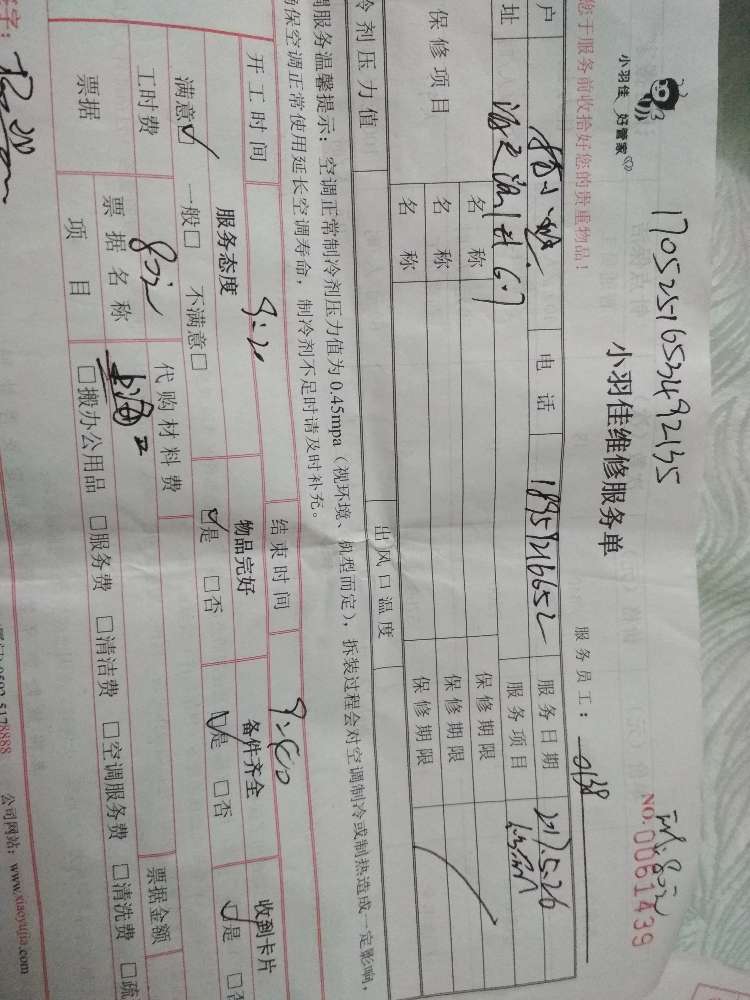 小羽佳 好管家
1705251653492135
小羽佳维修服务单
NO.0061439
您于服务前收拾好您的贵重物品！
服务员工： 0138
户 电话 18959216652 服务日期 2017.5.26
址 服务项目
保修项目 名称 保修期限
名称 保修期限
名称 保修期限
冷剂压力值 出风口温度
调服务温馨提示：空调正常制冷剂压力值为0.45mpa（视环境、机型而定），拆装过程会对空调制冷或制热造成一定影响，
确保空调正常使用延长空调寿命，制冷剂不足时请及时补充。
开工时间 9:20 结束时间 9:40
服务态度 物品完好 备件齐全 收到卡片
满意☑ 一般□ 不满意□ ☑是 □否 ☑是 □否 ☑是 □否
工时费 80元 代购材料费
票据 票据名称 票据金额
项目 □搬办公用品 □服务费 □清洁费 □空调服务费 □清洗费 □疏
签字：
0592-5178888 公司网站：www.xiaoyujia.com